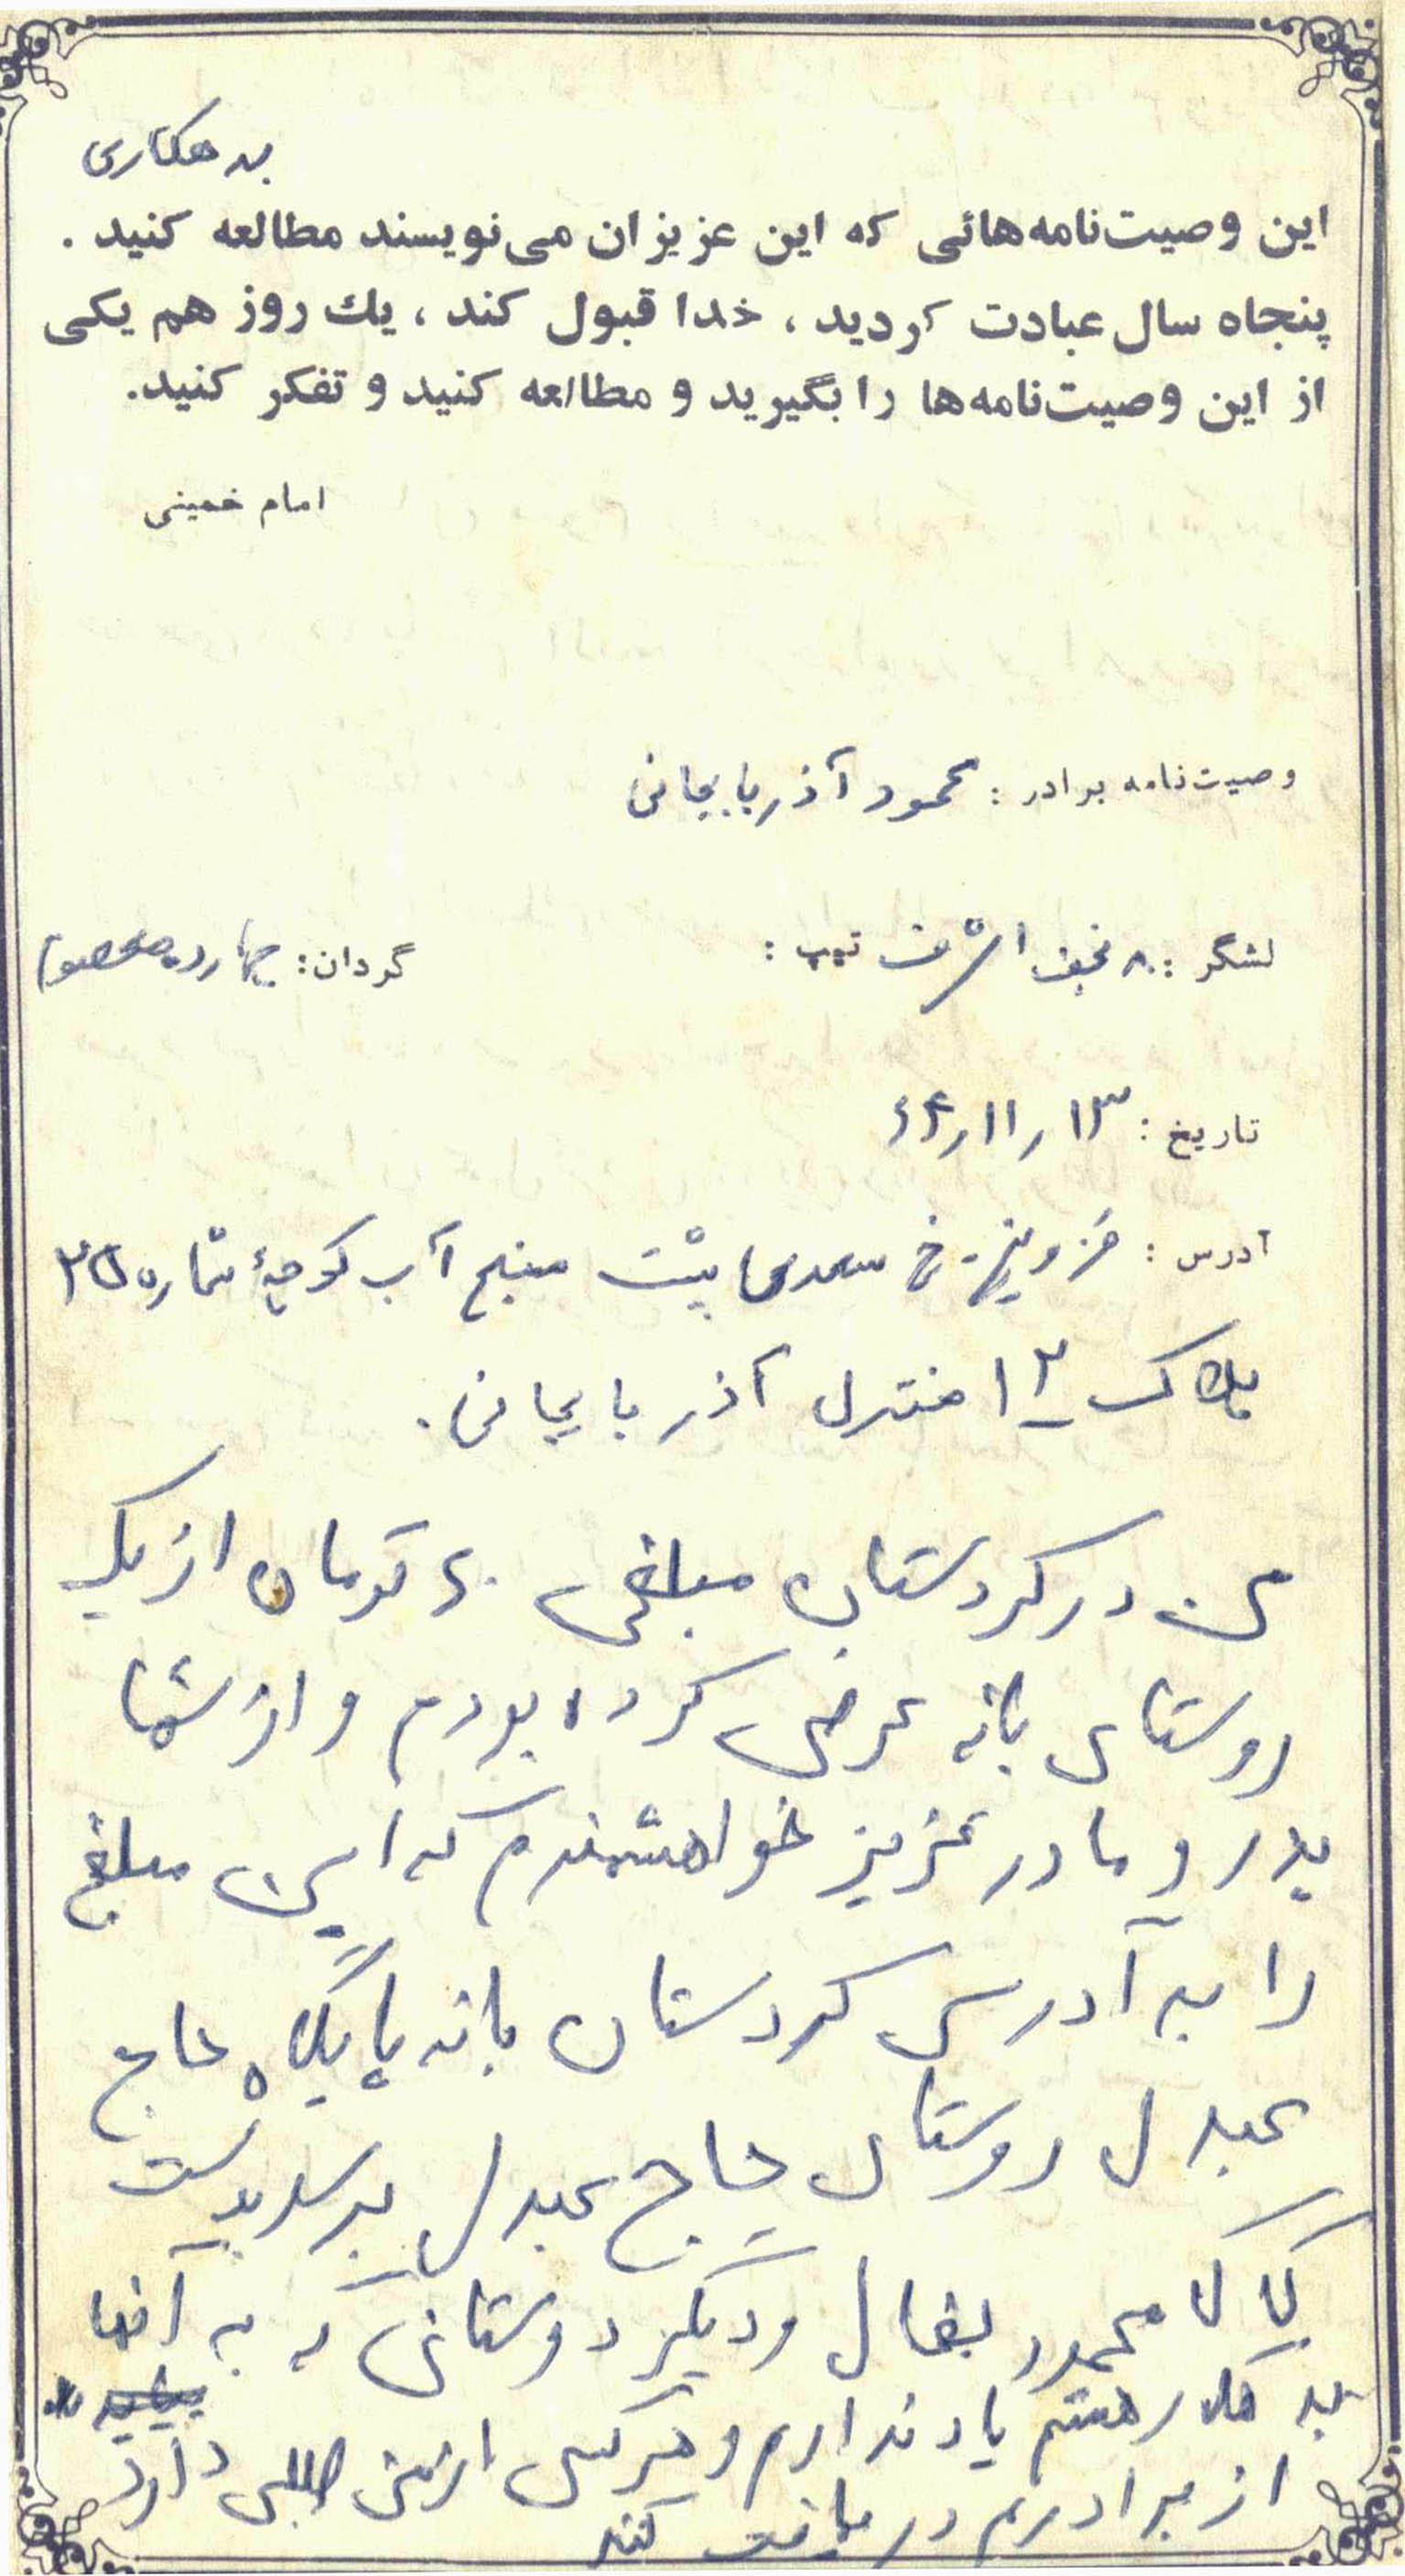 بدهکاری
این وصیت‌نامه‌هائی که این عزیزان می‌نویسند مطالعه کنید .
پنجاه سال عبادت کردید ، خدا قبول کند ، یك روز هم یکی
از این وصیت‌نامه‌ها را بگیرید و مطالعه کنید و تفکر کنید.
امام خمینی
وصیت‌نامه برادر : محمود آذربایجانی
لشگر : ۸ نجف اشرف تیپ : گردان : چهارده معصوم
تاریخ : ۱۳ ر ۱۱ ر ۶۶
آدرس : قزوین خ سعدی پشت منبع آب کوچهٔ شماره ۲۵
پلاک ۱۲ منزل آذربایجانی .
من در کردستان مبلغی ۶۰ تومان از یک
روستای بانه قرض کرده بودم و از شما
پدر و مادر عزیز خواهشمندم که این مبلغ
را به آدرس کردستان بانه پایگاه حاج
عبدل روستای حاج عبدل برسد بدست
کاکا محمود بقال و دیگر دوستانی که به آنها
بدهکار هستم یاد ندارم و هرکس از من طلبی دارد
از برادرم دریافت کند